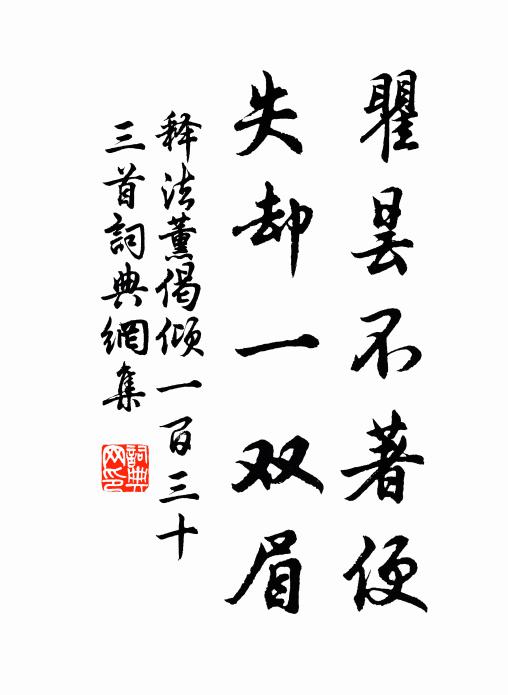 瞿昙不著便
失却一双眉
释法薰偈倾一百三十
三首詞典網集
詞典网印